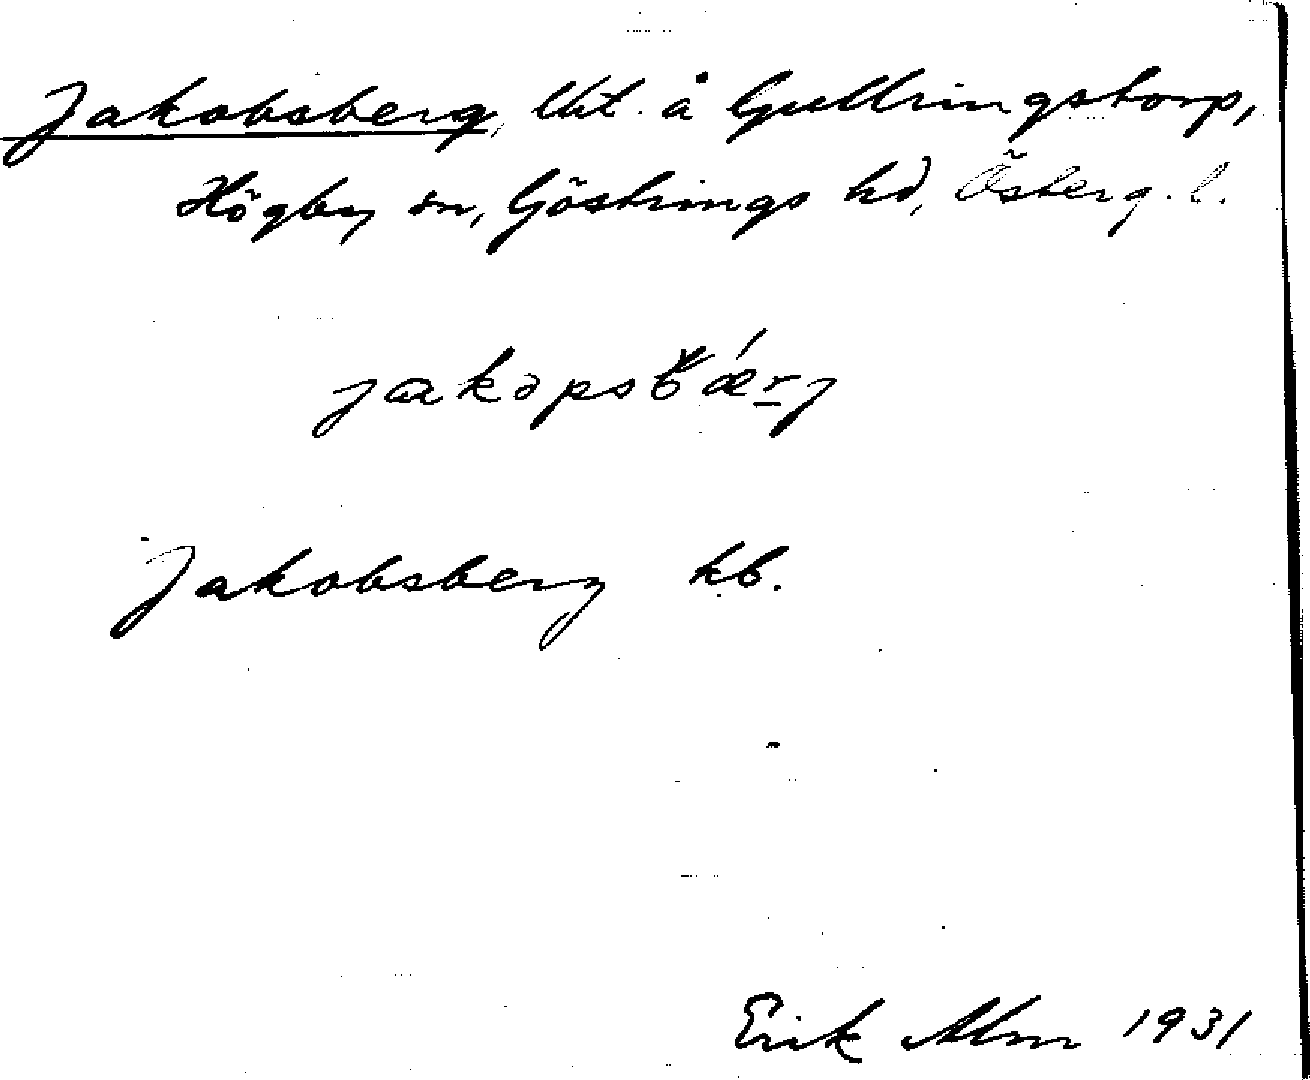 Jakobsberg, lht. å Gullringstorp,
Högby sn, Göstrings hd, Österg. l.
jakəpsbǽrj
Jakobsberg kb.
Erik Alm 1931